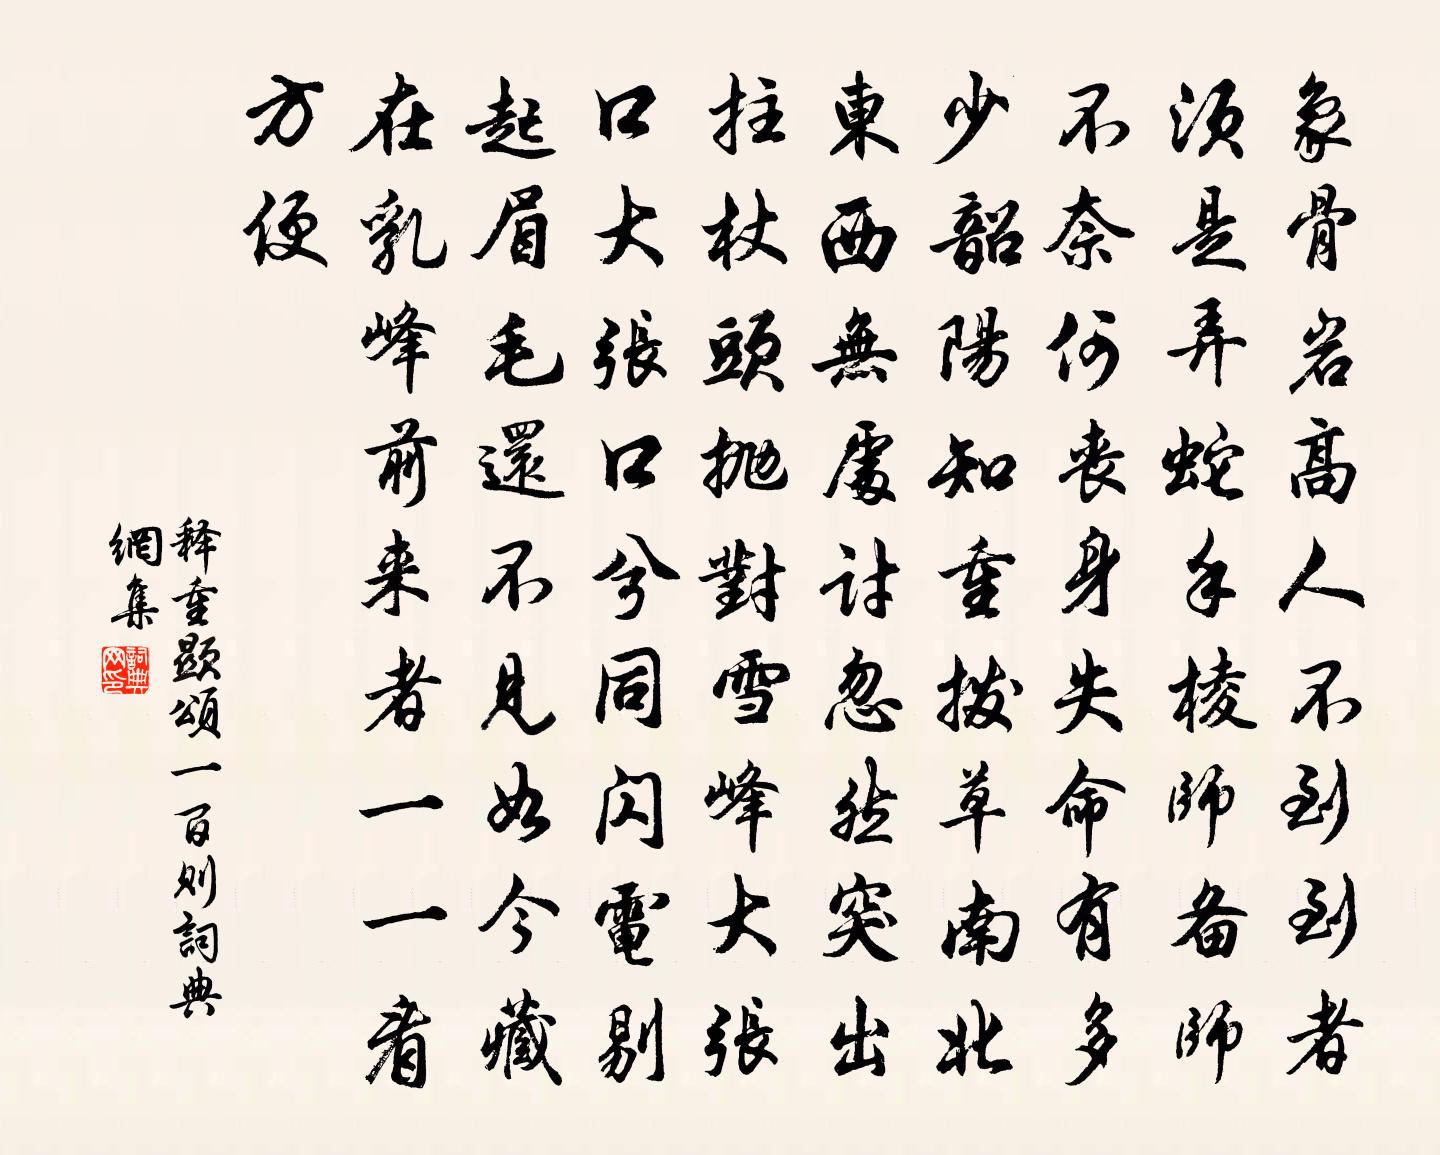 象骨岩高人不到到者
須是弄蛇手棱師备師
不奈何丧身失命有多
少韶陽知重拨草南北
東西無處討忽然突出
拄杖頭拋對雪峰大張
口大張口兮同閃電剔
起眉毛還不見如今藏
在乳峰前来者一一看
方便
释重顯頌一百则詞典
網集
詞典
网印